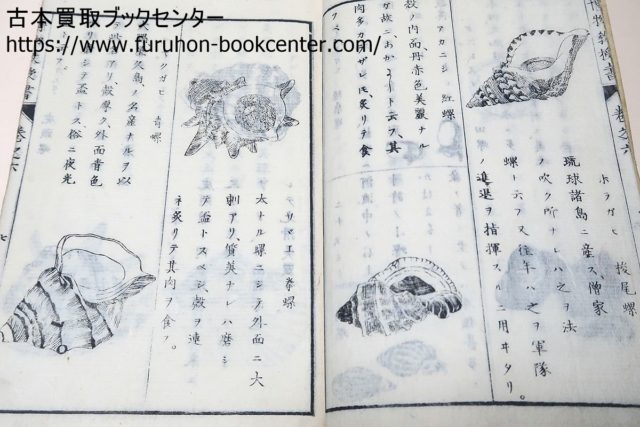 古本買取ブックセンター
https://www.furuhon-bookcenter.com/
卷之六
ホラガヒ 梭尾螺
琉球諸島ニ産ス、僧家
ノ吹ク所ナレハ之ヲ法
螺ト云フ又往年ハ之ヲ軍隊
ノ進退ヲ指揮スルニ用ヰタリ。
アカニシ 紅螺
殻ノ内面、丹赤色美麗ナル
ガ故ニ、あかにしト云フ、其
肉多カラザレ𪜈、炙リテ食
サヾエ 拳螺
大ナル螺ニシテ外面ニ大
刺アリ、質美ナレハ磨シ
テ盃トスベシ、殻ヲ連
ネ炙リテ其肉ヲ食フ。
青螺
屋久島ノ名産ナルヲ以
アリ、殻厚ク、外面青色
テ盃トス、俗ニ夜光
卷之六
七